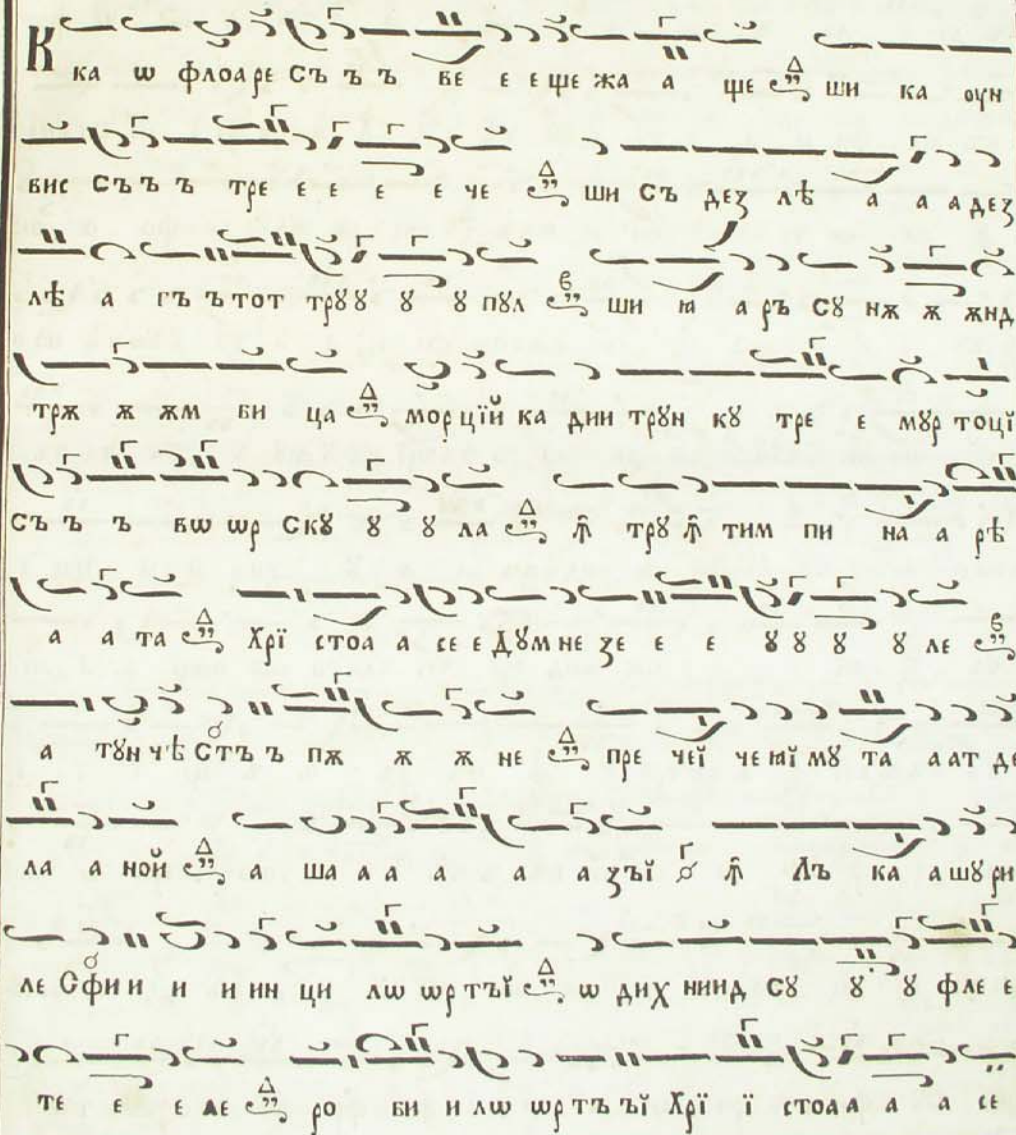 Кка ѡ флоаре Съ ъ ъ ве е е ще жа а ще ши ка оун
вис Съ ъ ъ тре е е е е че ши Съ дез лѣ а а а дез
лѣ а гъ ътот трꙋꙋ ꙋ ꙋ пꙋл ши ꙗ а ръ Сꙋ нѫ ѫ ѫнд
трѫ ѫ ѫм би ца морцїй ка дии трꙋн кꙋ тре е мꙋр тоцї
Съ ъ ъ вѡ ѡр Скꙋ ꙋ ꙋ ла ꙟ трꙋ ꙟ тим пи на а рѣ
а а та Хрї стоа а се е Дꙋм не зе е е ꙋ ꙋ ꙋ ꙋ ле
а тꙋн чѣ Стъ ъ пѫ ѫ ѫ не пре чеї че ꙗї мꙋ та а ат де
ла а ной а ша а а а а а зъї ꙟ Лъ ка а шꙋ ри
ле Сфи и и и ин ци лѡ ѡр тъї ѡ дих ниид Сꙋ ꙋ ꙋ фле е
те е е ле ро би и лѡ ѡр тъ ъї Хрї ї стоа а а а се